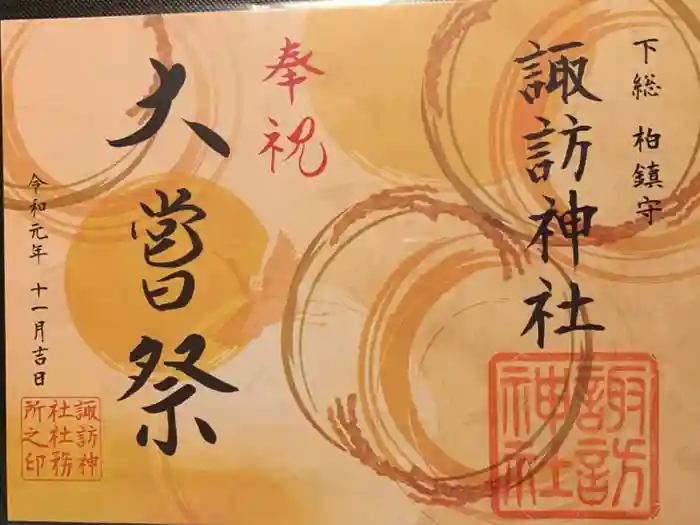 下総 柏鎮守
諏訪神社
諏訪
神社
奉祝
大嘗祭
令和元年 十一月吉日
諏訪神
社社務
所之印